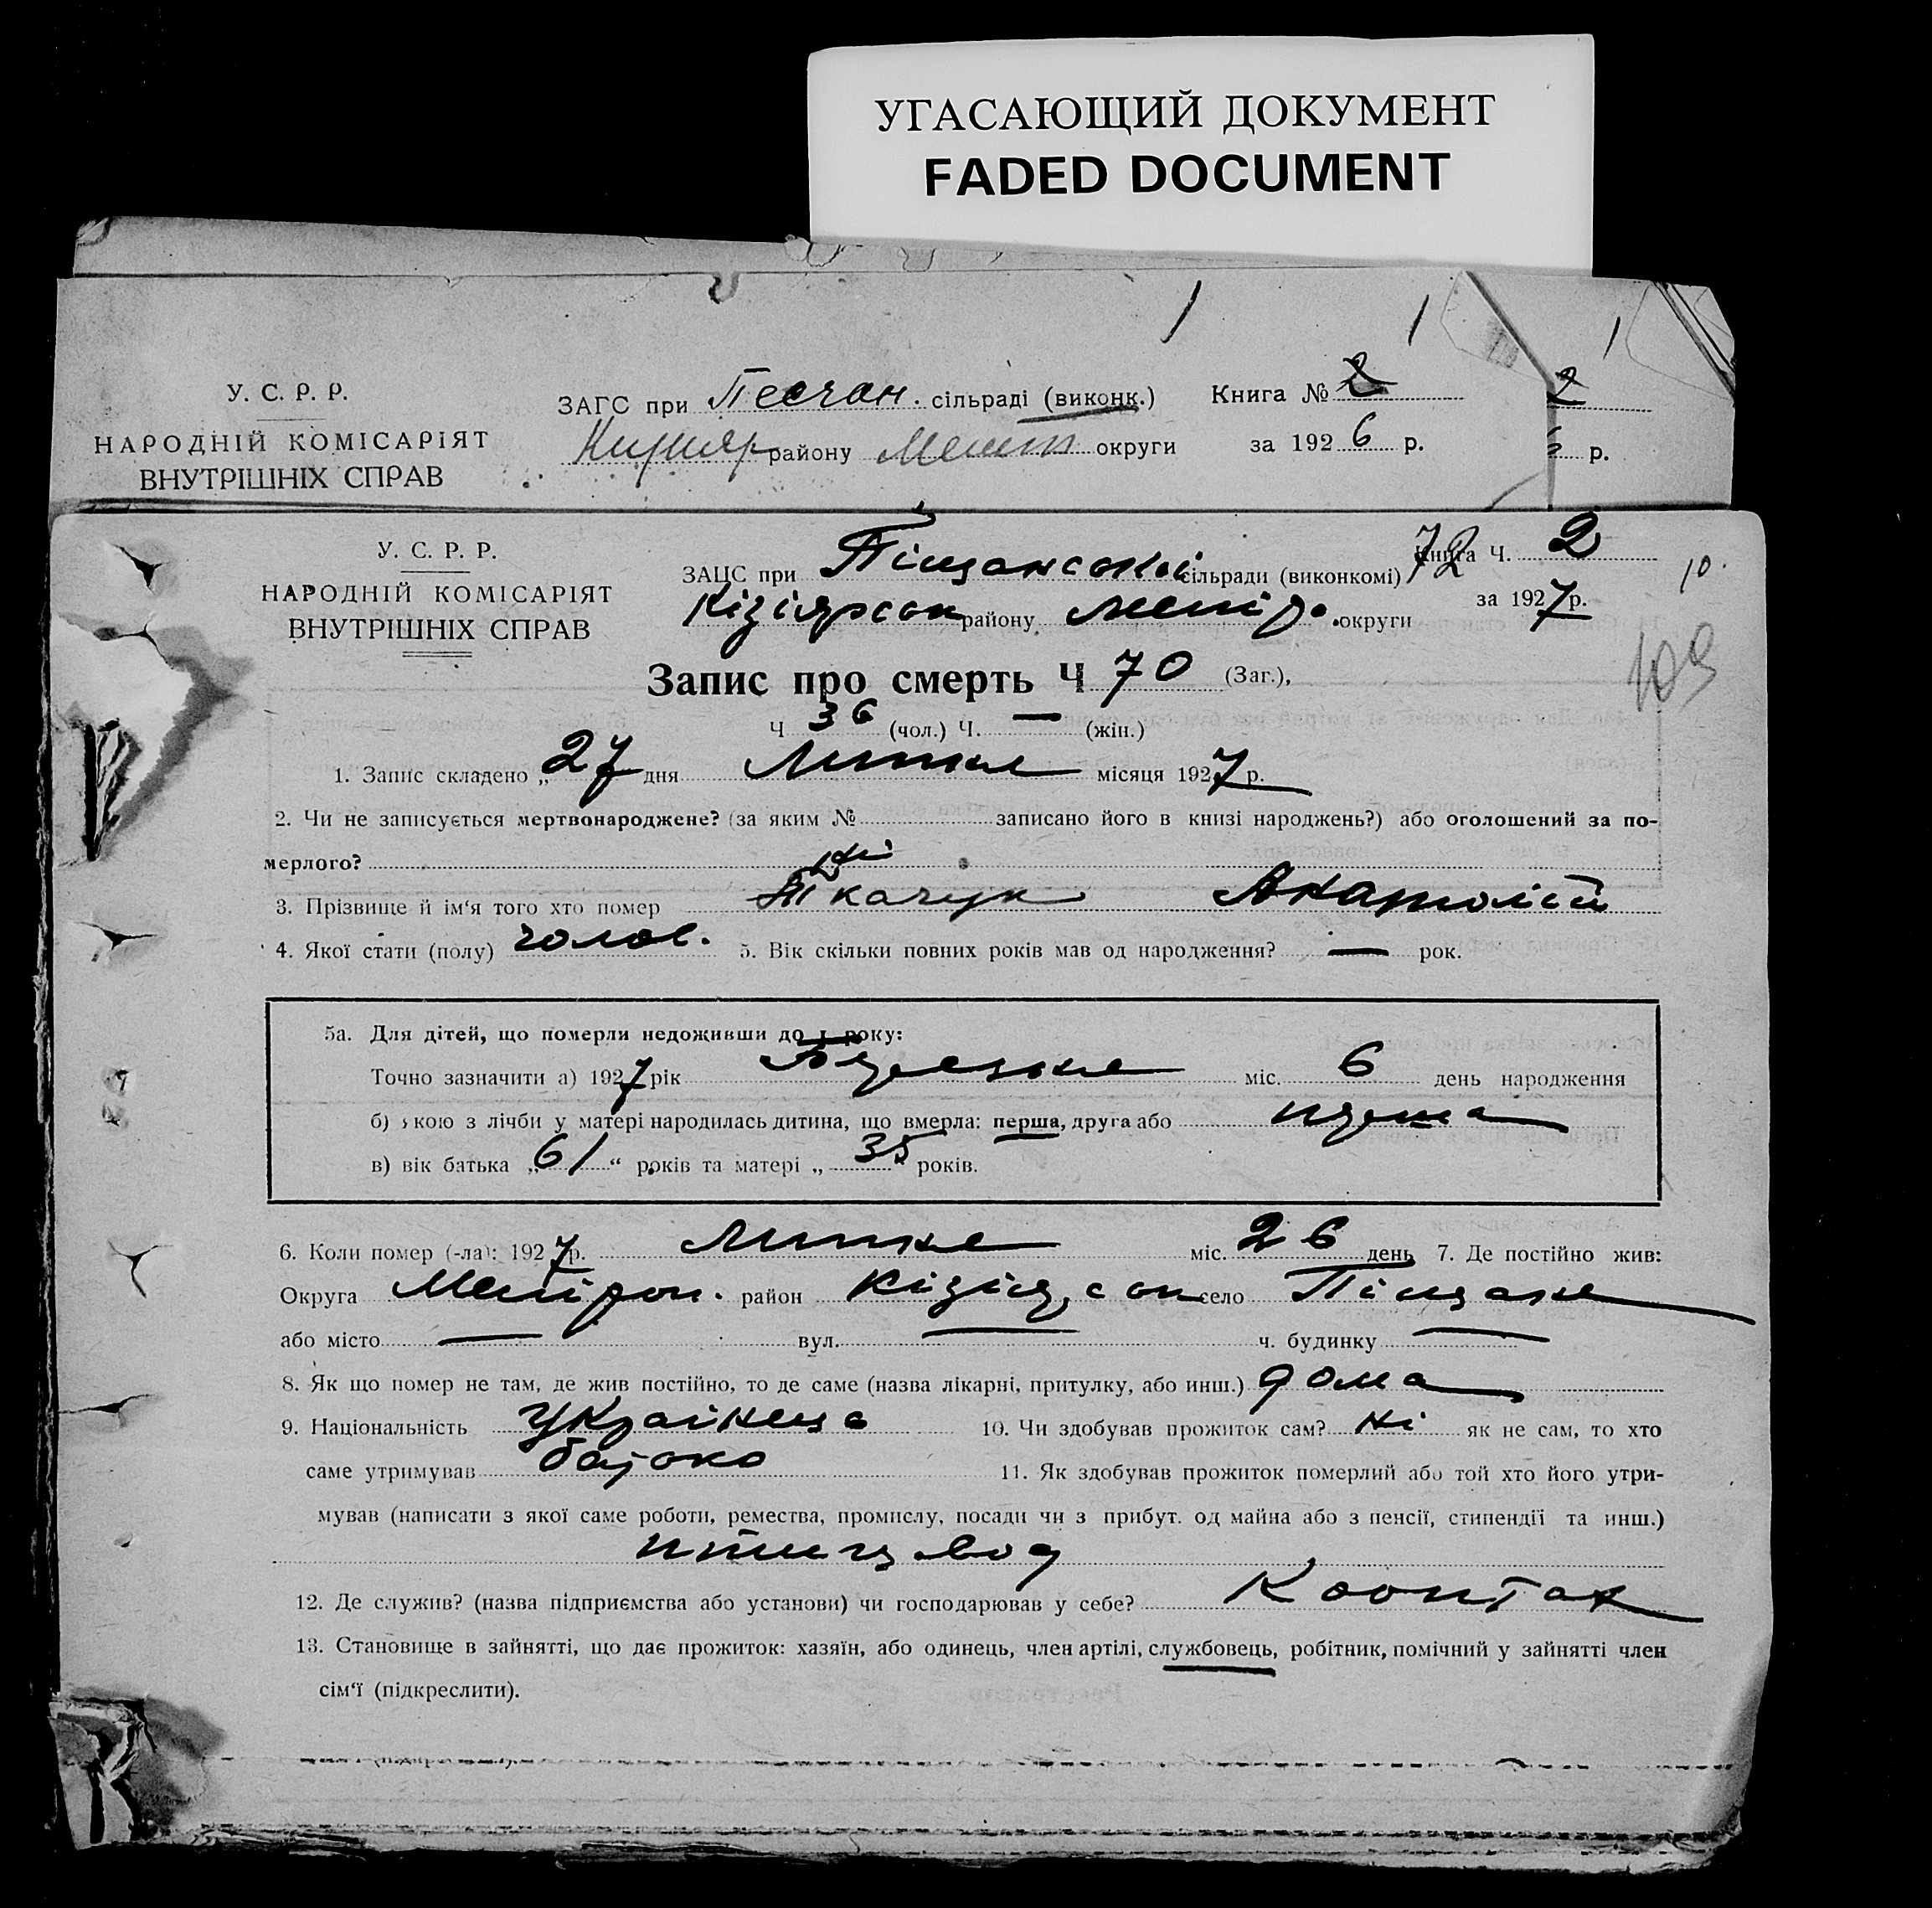 УГАСАЮЩИЙ ДОКУМЕНТ
FADED DOCUMENT
У. С. Р. Р.
НАРОДНІЙ КОМІСАРІЯТ
ВНУТРІШНІХ СПРАВ
ЗАГС при Песчан. сільраді (виконк.)
району Меліт округи
Книга № 2
за 1926 р.
2
6 р.
У. С. Р. Р.
НАРОДНІЙ КОМІСАРІЯТ
ВНУТРІШНІХ СПРАВ
ЗАЦС при Піщанській сільради (виконкомі) 72
Кізіярськ району Меліт. округи
Книга Ч. 2
за 1927 р.
10.
109
Запис про смерть Ч 70 (Заг.),
Ч 36 (чол.) Ч. — (жін.)
1. Запис складено „27 дня Липня місяця 1927 р.
2. Чи не записується мертвонароджене? (за яким № записано його в книзі народжень?) або оголошений за по-
мерлого? Ні
3. Прізвище й ім‘я того хто помер Ткачук Анатолій
4. Якої стати (полу) чолов. 5. Вік скільки повних років мав од народження? — рок.
5а. Для дітей, що померли недоживши до 1 року:
Точно зазначити а) 1927 рік Березня міс. 6 день народження
б) якою з лічби у матері народилась дитина, що вмерла: перша, друга або перша
в) вік батька „61“ років та матері „35“ років.
6. Коли помер (-ла): 1927 р. Липня міс. 26 день 7. Де постійно жив:
Округа Мелітроп. район Кізіярськ село Піщане
або місто — вул. — ч. будинку —
8. Як що помер не там, де жив постійно, то де саме (назва лікарні, притулку, або инш.) дома
9. Національність Українець 10. Чи здобував прожиток сам? Ні як не сам, то хто
саме утримував батько 11. Як здобував прожиток померлий або той хто його утри-
мував (написати з якої саме роботи, ремества, промислу, посади чи з прибут. од майна або з пенсії, стипендії та инш.)
12. Де служив? (назва підприємства або установи) чи господарював у себе? Кооптах
13. Становище в зайнятті, що дає прожиток: хазяїн, або одинець, член артілі, службовець, робітник, помічний у зайнятті член
сім‘ї (підкреслити).